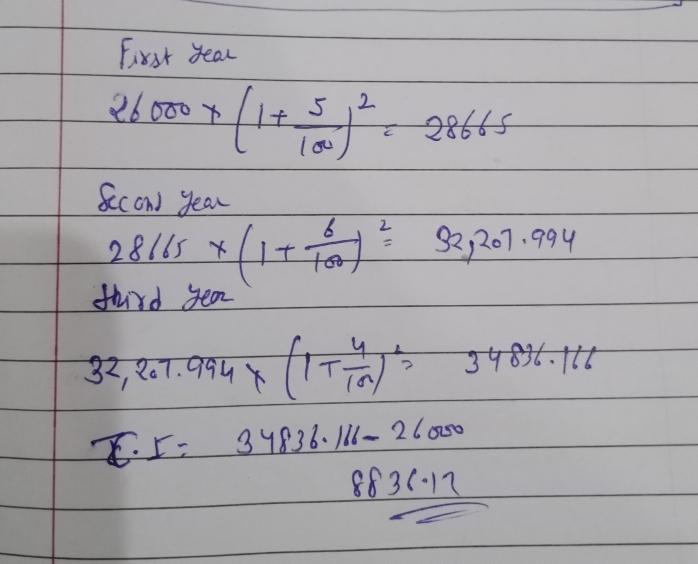 First year
26000 × (1 + 5/100)² = 28665
Second year
28665 × (1 + 6/100)² = 32,207.994
third year
32,207.994 × (1 + 4/100)² = 34836.166
C.I = 34836.166 - 26000
8836.17